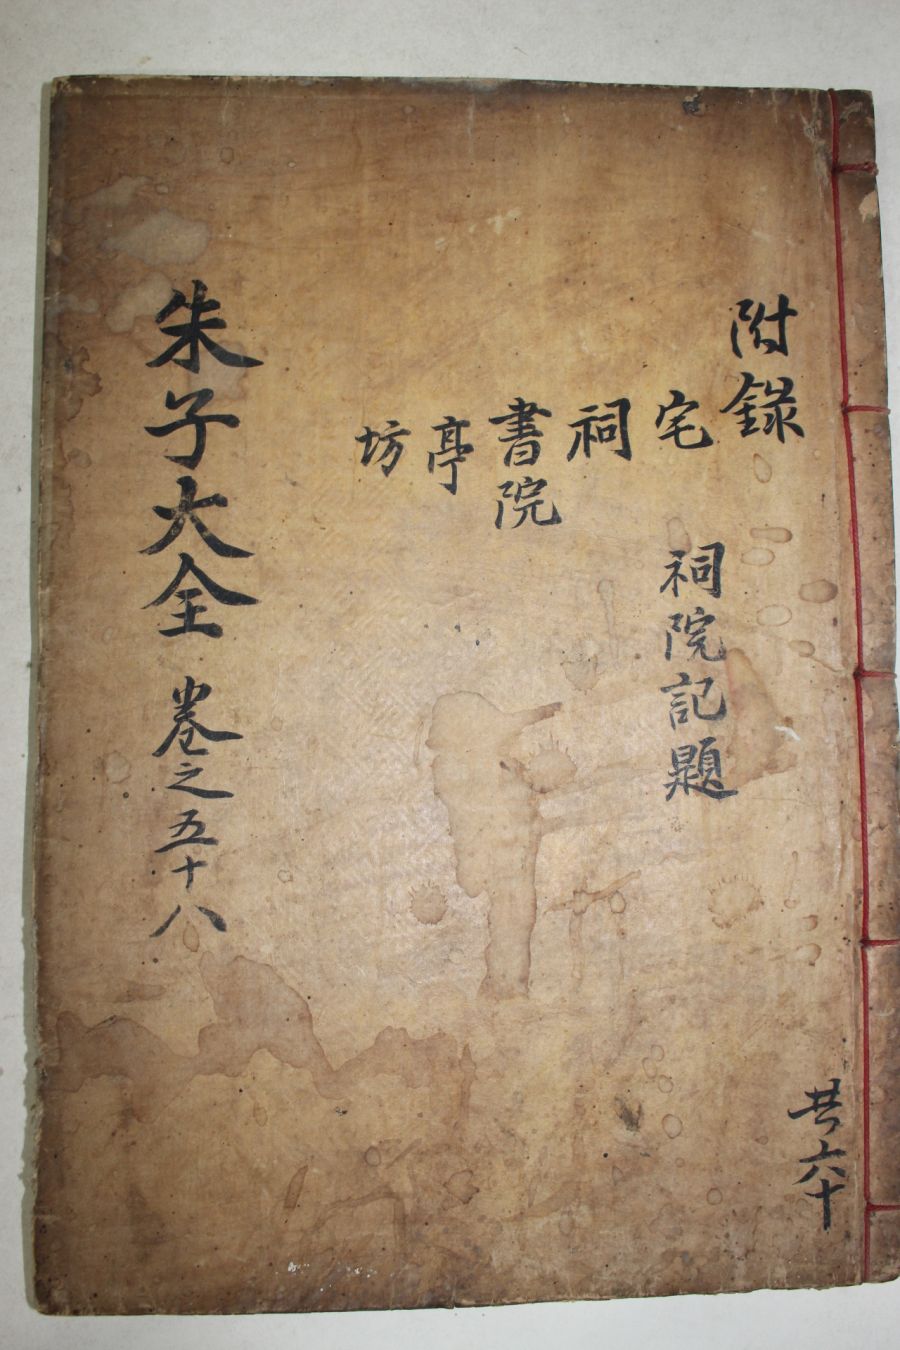 附錄
宅 祠院記題
祠
書院
亭
坊
朱子大全 卷之五十八
共六十